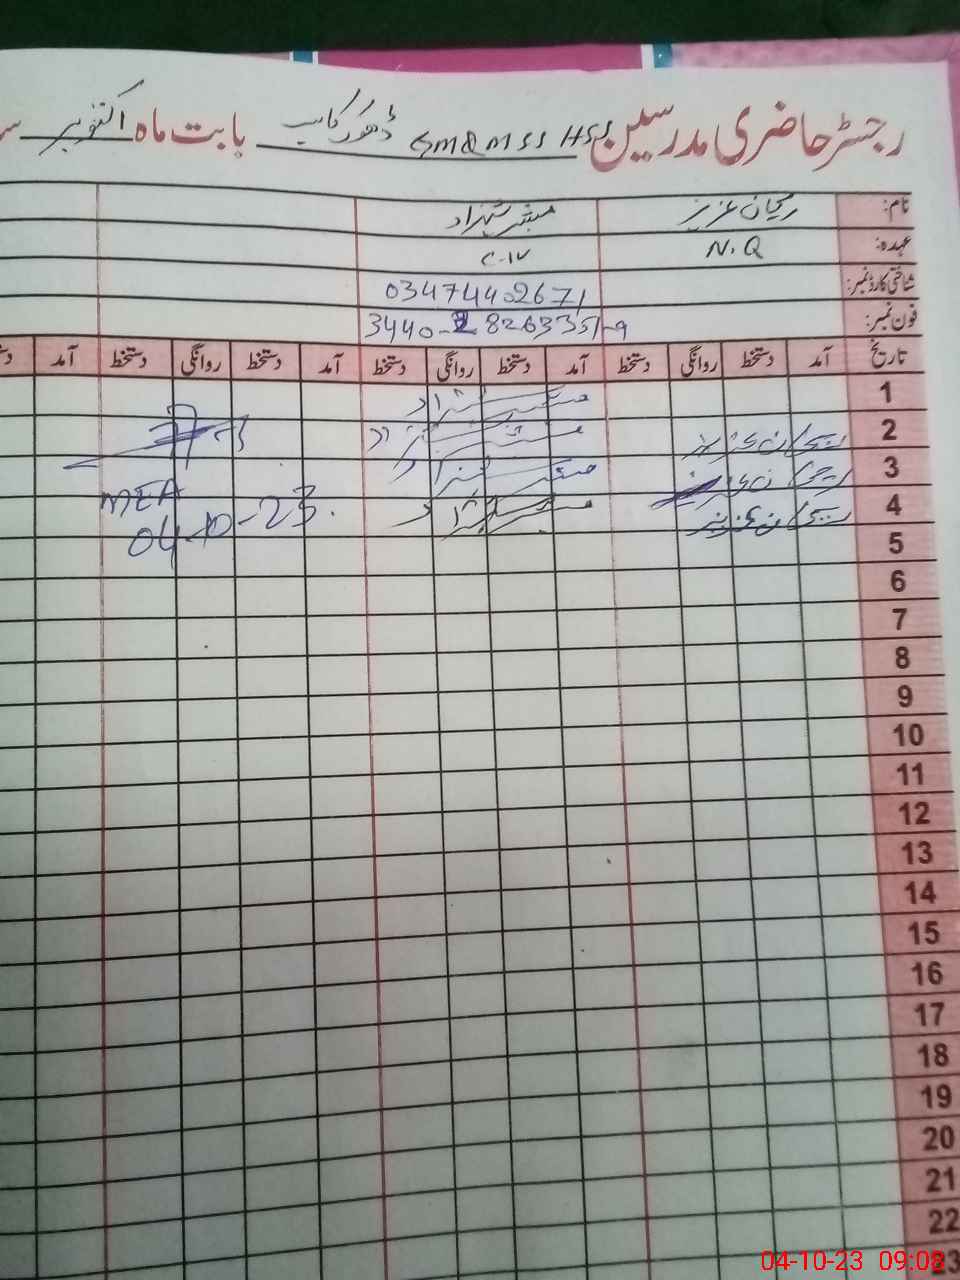 رجسٹر حاضری مدرسین GMQMSS HSS ڈھورکاسب بابت ماہ اکتوبر
نام: ریحان عزیز مبشر شہزاد
عہدہ: N.Q C-IV
شناختی کارڈ نمبر: 03474402671
فون نمبر: 3440-28263351-9
تاریخ آمد دستخط روانگی دستخط آمد دستخط روانگی دستخط آمد دستخط روانگی دستخط آمد
1 مبشر شہزاد
2 ریحان عزیز مبشر شہزاد
3 ریحان عزیز مبشر شہزاد
4 ریحان عزیز مبشر شہزاد MEA
5 04-10-23
6
7
8
9
10
11
12
13
14
15
16
17
18
19
20
21
22
23
04-10-23 09:08